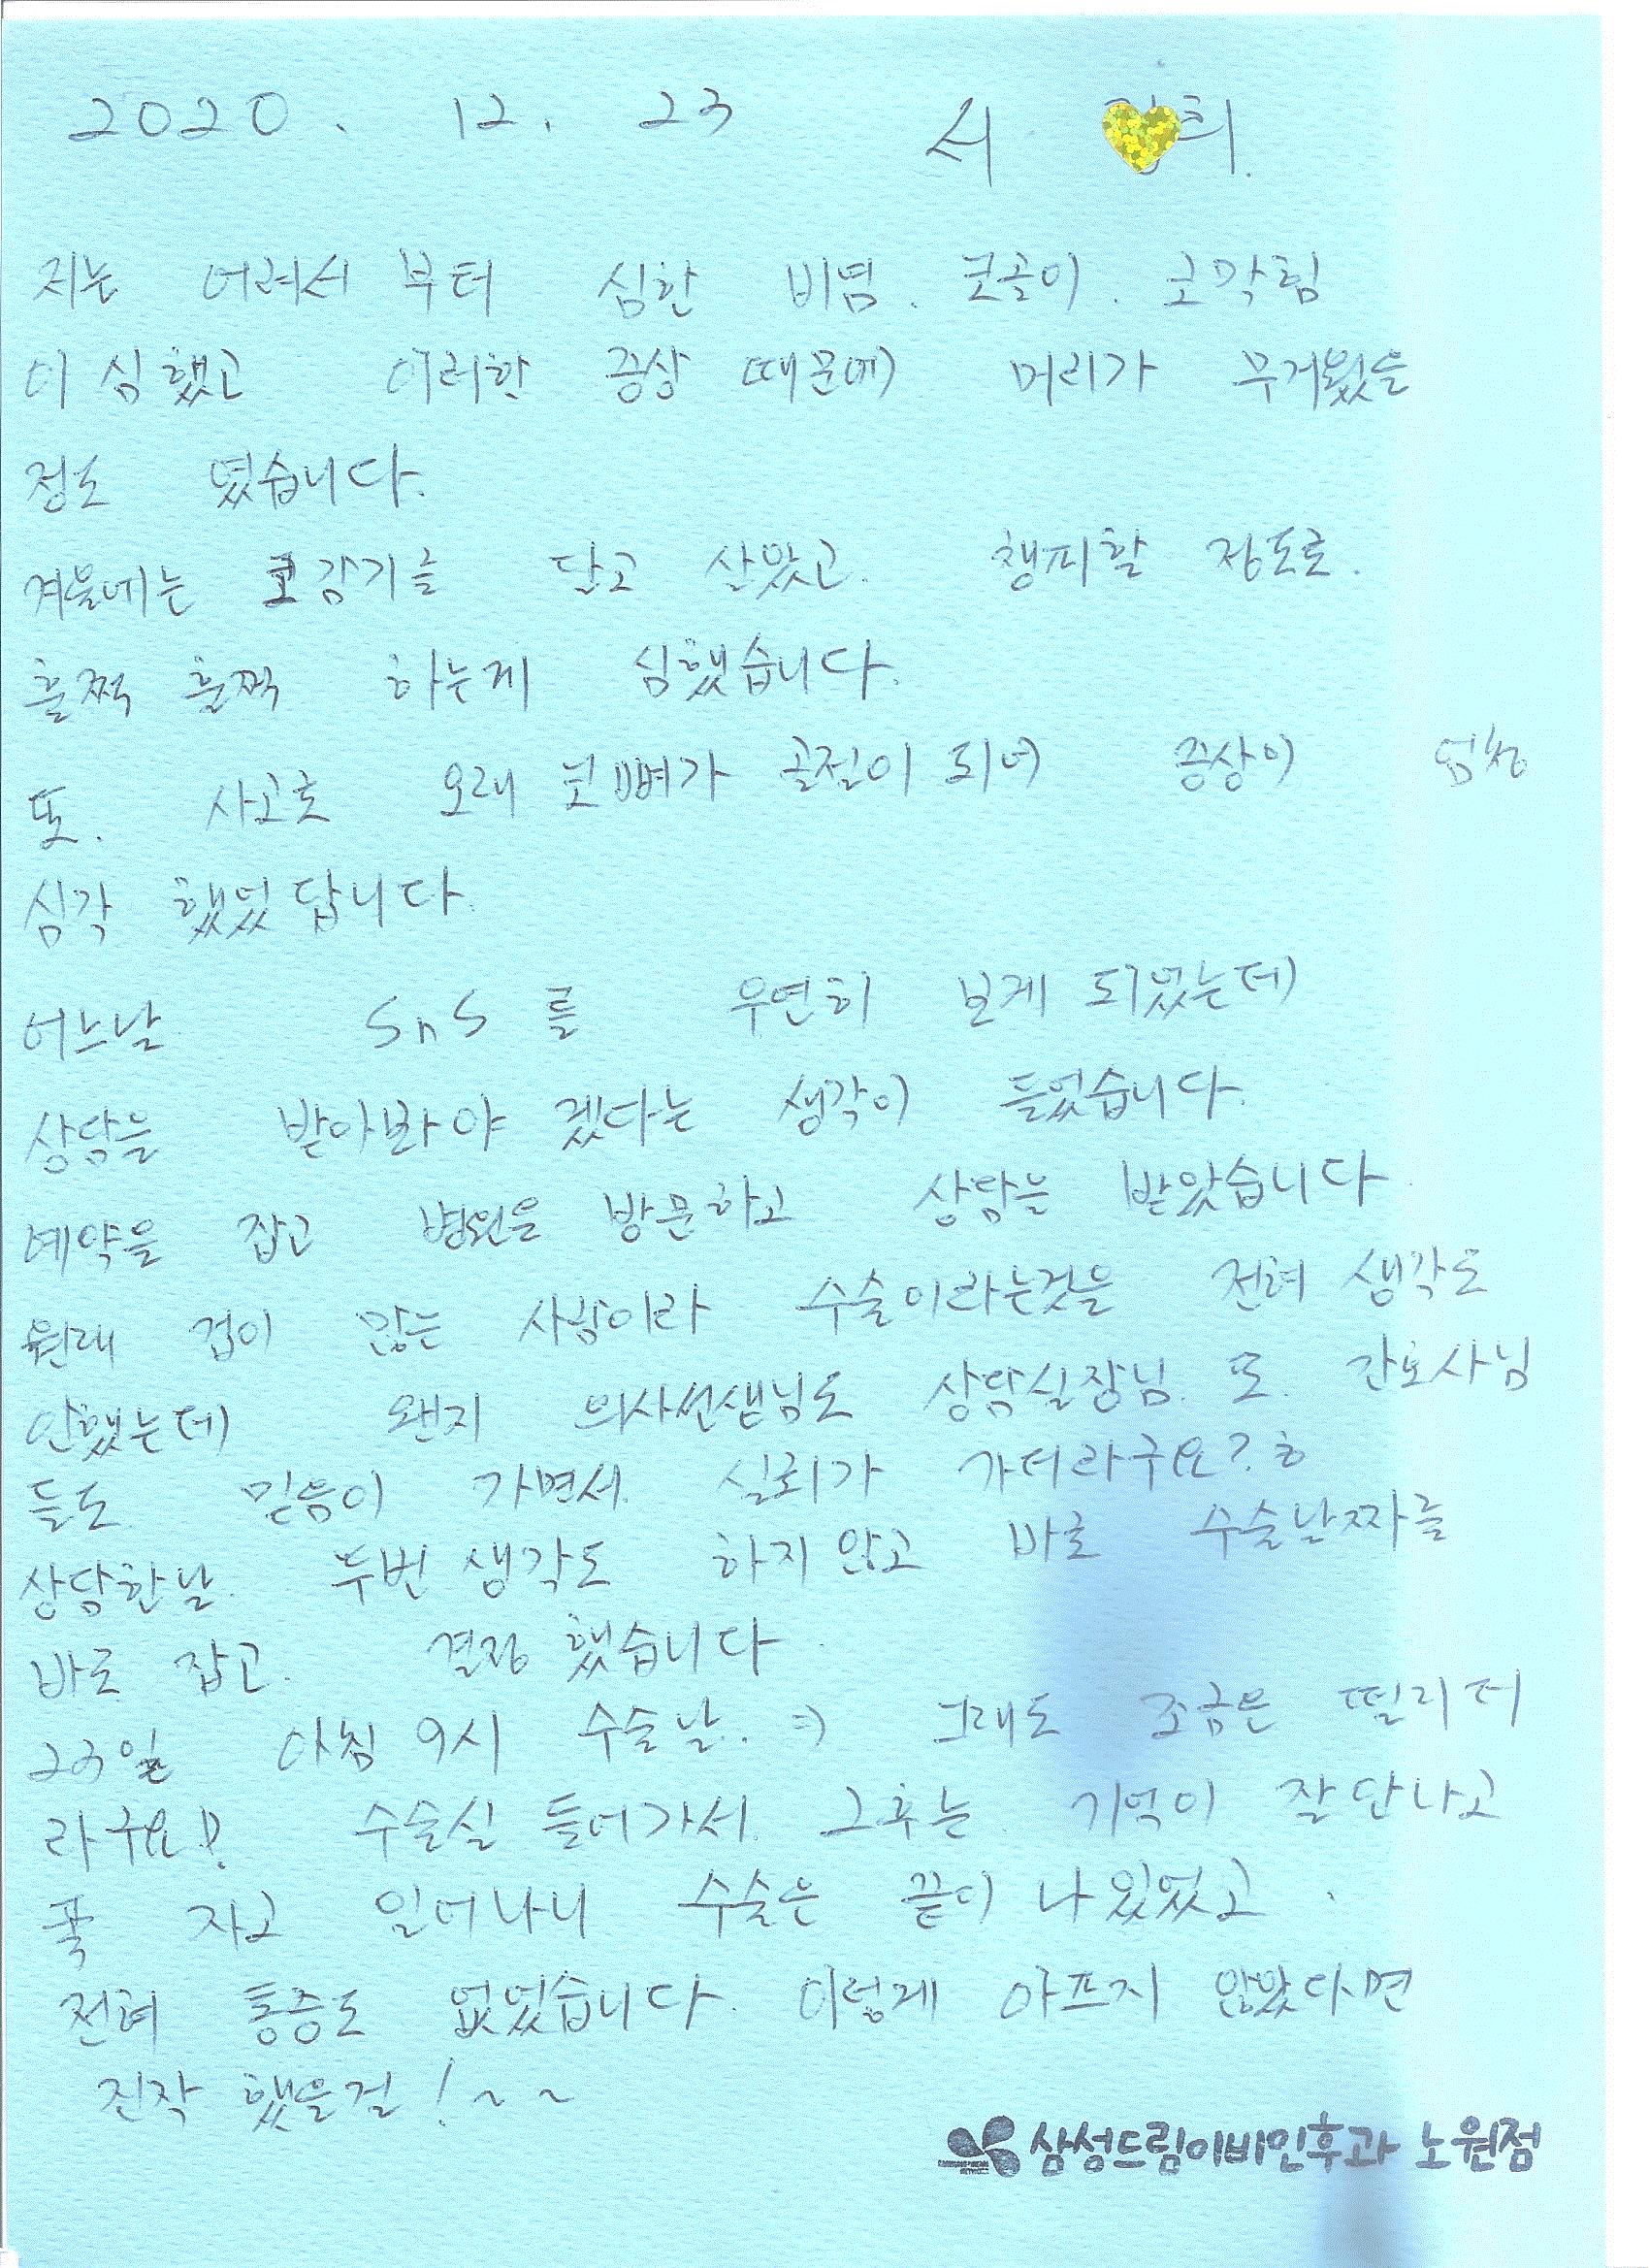 2020. 12. 23 서 희.
저는 어려서 부터 심한 비염. 코골이. 코막힘
이 심했고 이러한 증상 때문에 머리가 무거웠을
정도 였습니다.
겨울에는 코감기를 달고 살았고. 챙피할 정도로.
훌쩍 훌쩍 하는게 심했습니다.
또. 사고로 오래 코뼈가 골절이 되어 증상이 엄청
심각 했었답니다.
어느날 SnS를 우연히 보게 되었는데
상담을 받아봐야 겠다는 생각이 들었습니다.
예약을 잡고 병원을 방문하고 상담을 받았습니다.
원래 겁이 많은 사람이라 수술이라는것을 전혀 생각도
안했는데 왠지 의사선생님도 상담실장님. 또. 간호사님
들도 믿음이 가면서. 신뢰가 가더라구요? ㅎ
상담한날. 두번 생각도 하지않고 바로 수술날짜를
바로 잡고. 결정 했습니다.
23일 아침 9시 수술날. =) 그래도 조금은 떨리더
라구요! 수술실 들어가서. 그후는 기억이 잘 안나고
푹 자고 일어나니 수술은 끝이 나 있었고.
전혀 통증도 없었습니다. 이렇게 아프지 않았다면
진작 했을걸!~~
삼성드림이비인후과 노원점